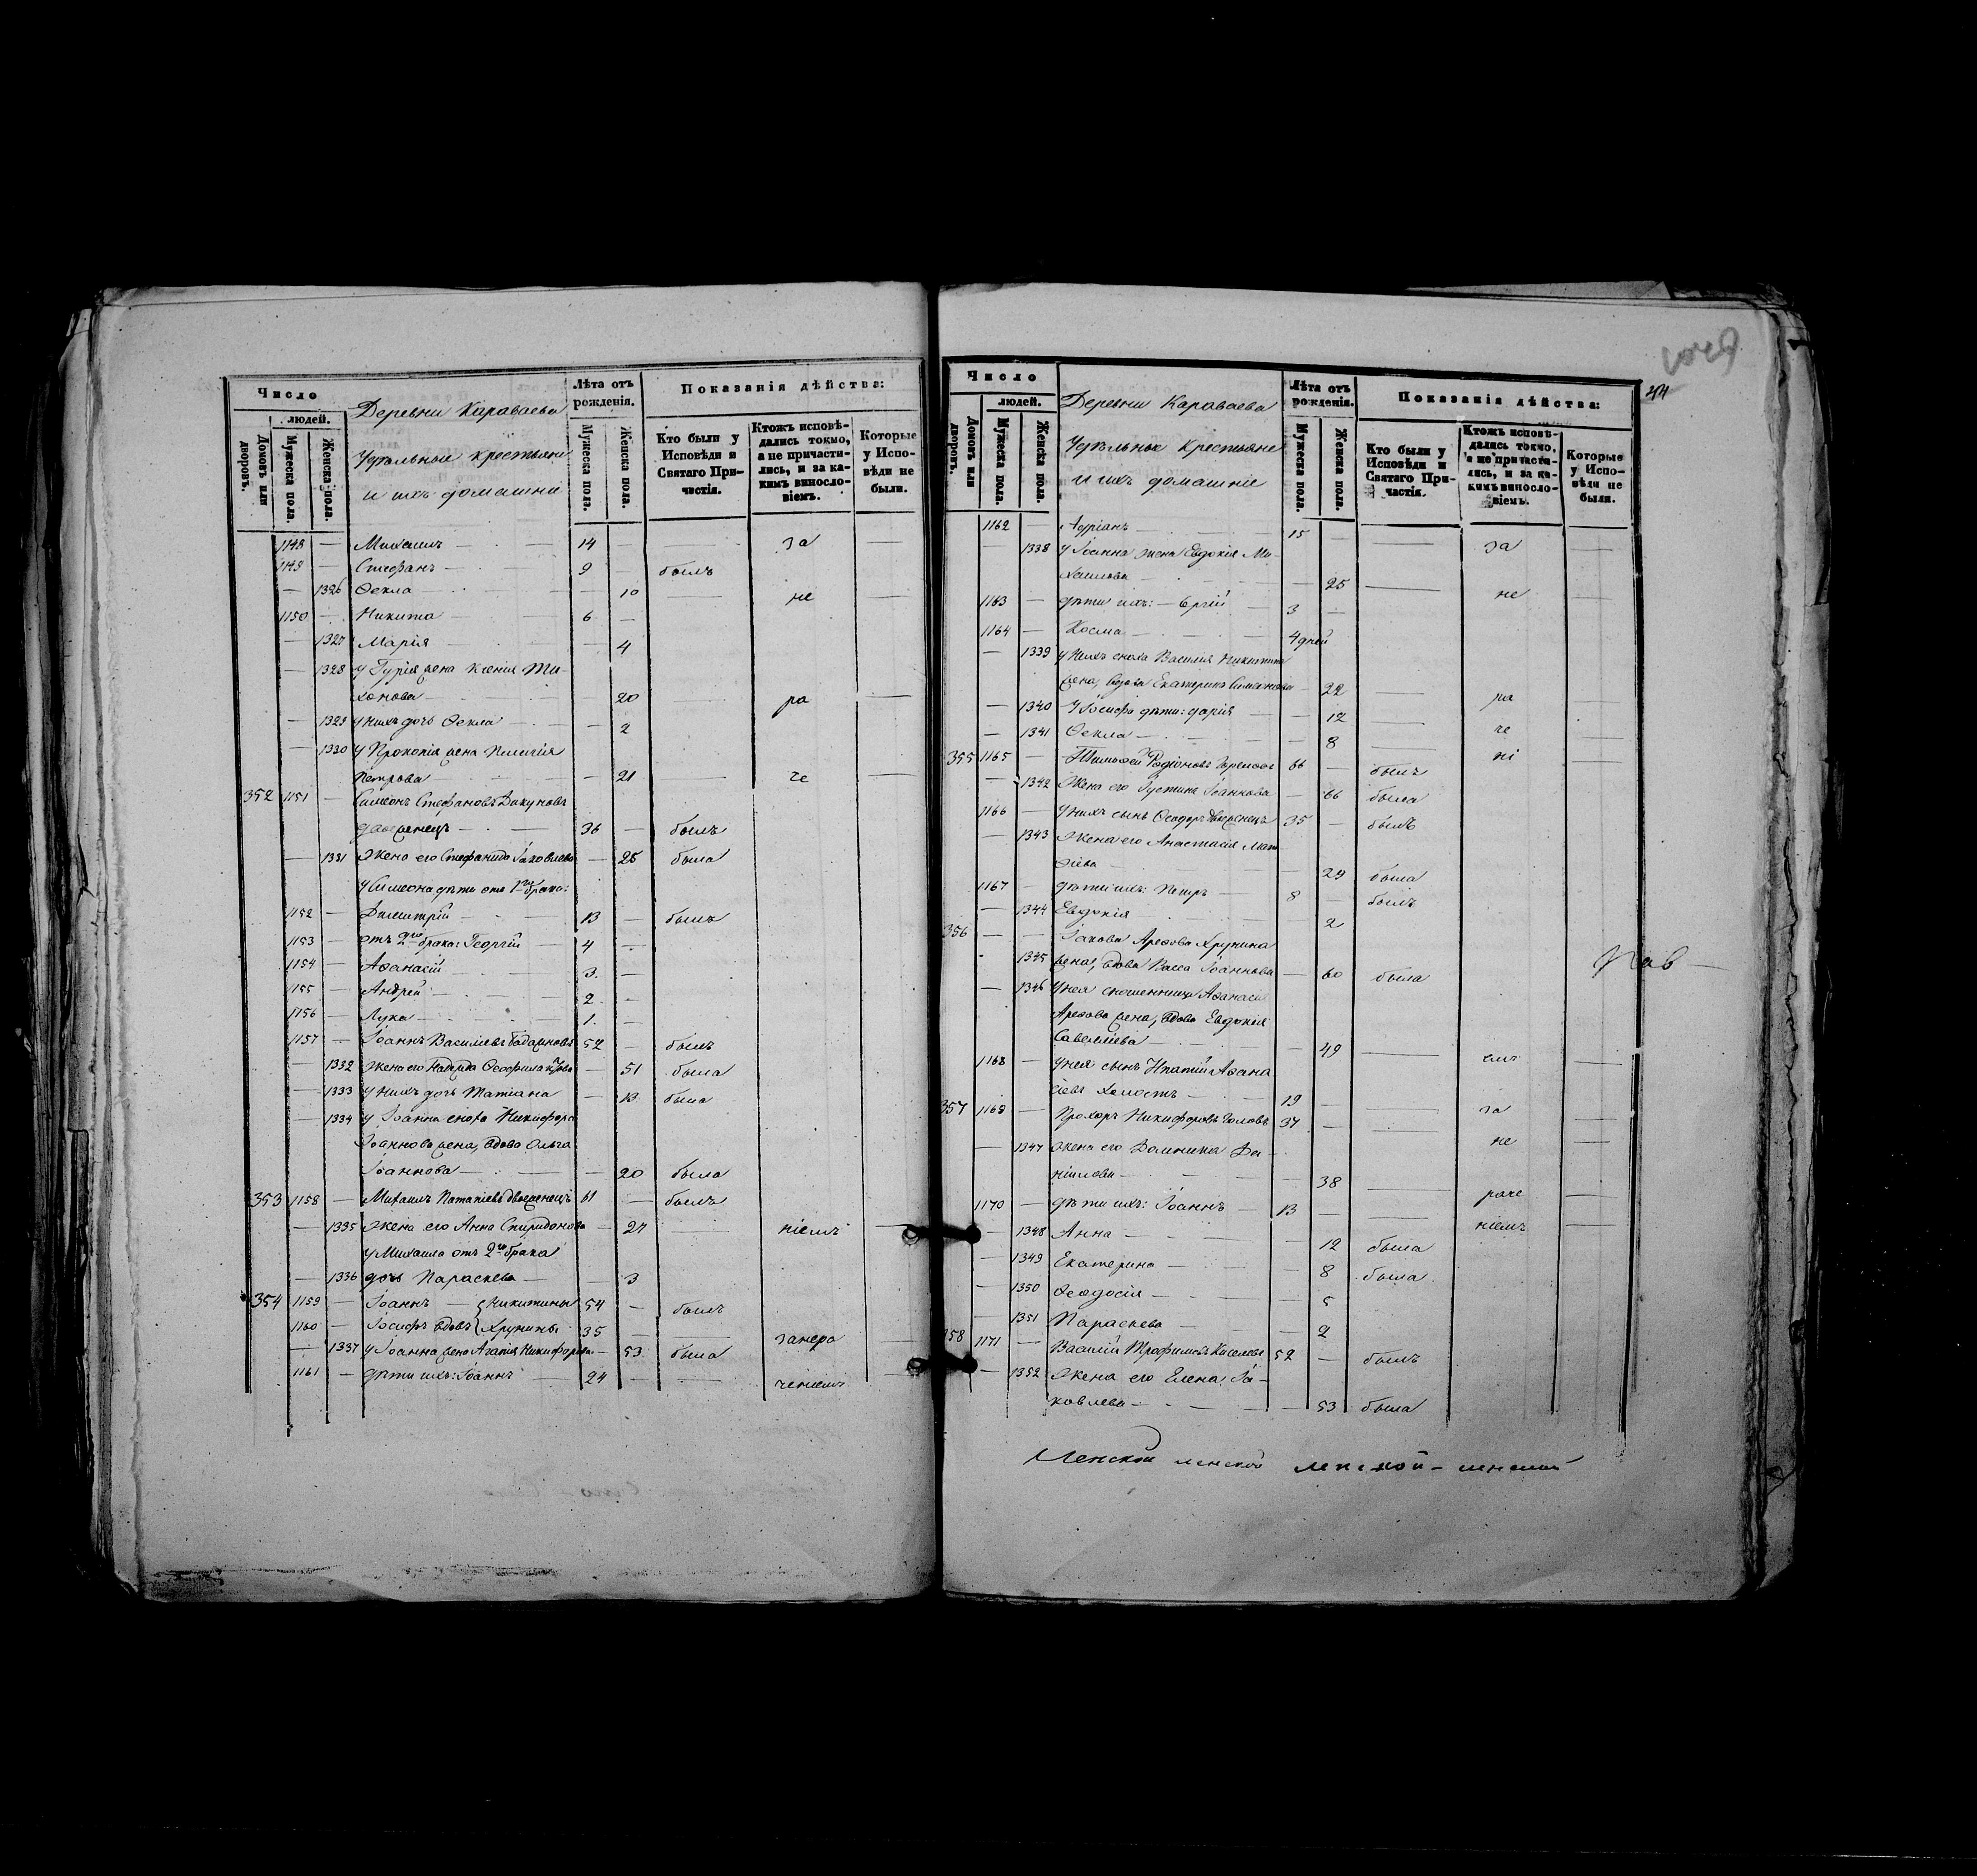 Число
людей.
Домовъ или дворовъ.
Мужеска пола.
Женска пола.
Деревни Караваева
Удѣльные крестьяне
и ихъ домашніе
Лѣта отъ рожденія.
Мужеска пола.
Женска пола.
Показанія дѣйства:
Кто были у Исповѣди и Святаго Причастія.
Ктожъ исповѣдались токмо, а не причастились, и за какимъ винословіемъ.
Которые у Исповѣди не были.
1148 — Михаилъ — 14 — — за —
1149 — Стефанъ — 9 — былъ
— 1326 Ѳекла — — 10 — не —
1150 — Никита — 6 —
— 1327 Марія — — 4
— 1328 у Гурія жена Ксенія Ти-
хонова — — 20 — ра —
— 1329 у нихъ дочь Ѳекла — — 2
— 1330 У Прокопія жена Пелагія
Петрова — — 21 — че —
352 1151 — Симеонъ Стефановъ
36 — былъ
— 1331 Жена его Стефанида Іаковлева — 25 была
у Симеона дѣти отъ 1го брака:
1152 — Димитрій — 13 — былъ
1153 — отъ 2го брака: Георгій — 4 —
1154 — Аѳанасій — 3 —
1155 — Андрей — 2 —
1156 — Лука — 1 —
1157 — Іоаннъ Васильевъ 52 — былъ
— 1332 Жена его — 51 была
— 1333 у нихъ дочь Татіана — 13 была
— 1334 у Іоанна сноха Никифора
Іоаннова жена, вдова Ольга
Іоаннова — — 20 была
353 1158 — Михаилъ 61 — былъ
— 1335 Жена его Анна Спиридонова — 27 — ніемъ —
у Михаила отъ 2го брака
— 1336 дочь Параскева — — 3
354 1159 — Іоаннъ — Никитины 54 — былъ
1160 — Іосифъ вдовъ Хрунины 35 — — занера —
1337 у Іоанна жена Агапія Никифорова — 53 была
1161 — дѣти ихъ: Іоаннъ — 24 — — ченіемъ —
44
Число
людей.
Домовъ или дворовъ.
Мужеска пола.
Женска пола.
Деревни Караваева
Удѣльные крестьяне
и ихъ домашніе
Лѣта отъ рожденія.
Мужеска пола.
Женска пола.
Показанія дѣйства:
Кто были у Исповѣди и Святаго Причастія.
Ктожъ исповѣдались токмо, а не причастились, и за какимъ винословіемъ.
Которые у Исповѣди не были.
1162 — Адріанъ — 15 — — за —
— 1338 у Іоанна жена Евдокія Ми-
хаилова — — 25 — не —
1163 — дѣти ихъ: — 3 —
1164 — Косма — 4 дней
— 1339 у нихъ сноха Василія Никитина
жена, вдова Екатерина — 22 — ра —
— 1340 У Іосифа дѣти: Дарія — — 12 — че —
— 1341 Ѳекла — — 8 — ні
355 1165 — Тимоѳей Родіоновъ 66 — былъ
— 1342 Жена его Іустина Іоаннова — 66 была
1166 — У нихъ сынъ Ѳеодоръ 35 — былъ
— 1343 Жена его Анастасія Мат
ѳіева — — 29 была
1167 — дѣти ихъ: Петръ — 8 — былъ
— 1344 Евдокія — 2
356 — — Іакова Хрунина
1345 жена, вдова Васса Іоаннова — 60 была
Пав —
— 1346 у нея Аѳанасія
жена, вдова Евдокія
Савеліева — — 49 — емъ —
1168 — у нея сынъ Ипатій Аѳана
сіевъ холостъ — 19 — — за —
357 1169 — Прохоръ Никифоровъ 37 — — не —
— 1347 Жена его Домника Да-
ніилова — — 38 — раче —
1170 — дѣти ихъ: Іоаннъ — 13 — — ніемъ —
— 1348 Анна — — 12 была
— 1349 Екатерина — — 8 была
— 1350 Ѳеодосія — — 5
— 1351 Параскева — — 2
358 1171 — Василій Трофимовъ Киселевъ 52 — былъ
— 1352 Жена его Елена Іа-
ковлева — — 53 была